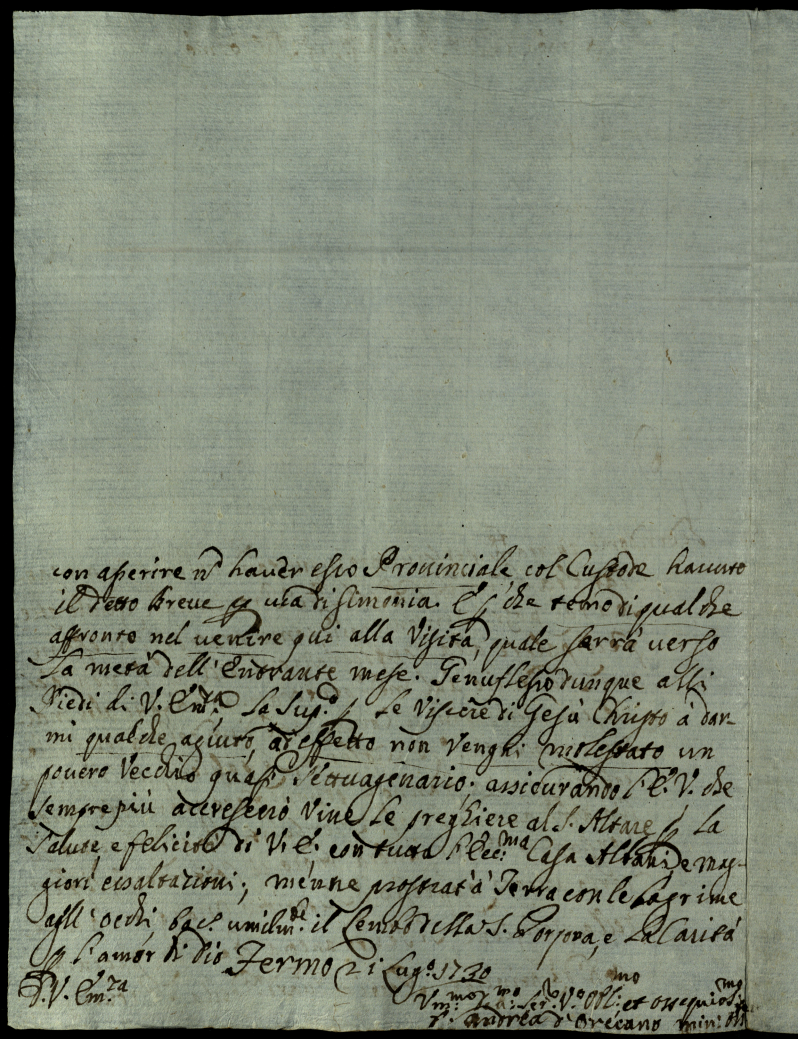 con asserire nō haver esso Provinciale, col Custode havuto
il detto breve p via di simonia. E p che temo di qualche
affronto nel venire qui alla Visita, quale sarrà verso
la metà dell'entrante mese. Genuflesso dunque alli
Piedi di V. Em.za La Sup.co p Le Viscere di Gesù Christo à dar-
mi qualche agiuto, ad effetto non venghi molestato un
povero Vecchio quasi Settuagenario. assicurando l'E. V. che
sempre più accrescerò vive le preghiere al S. Altare p La
Salute, e felicità di V. E. con tutta l'Ecc.ma Casa Albani, e mag-
giori essaltazioni; mentre prostrat'à Terra con le Lagrime
agl'occhi, bacio umilm.te il Lembo della S. Porpora, e La Carità
p l'amor di Dio Fermo 21 Lug.o 1730
D. V. Em.za
Um.mo Ser.e V.o Obl.mo et ossequios.mo
F. Andrea d' min: Oss